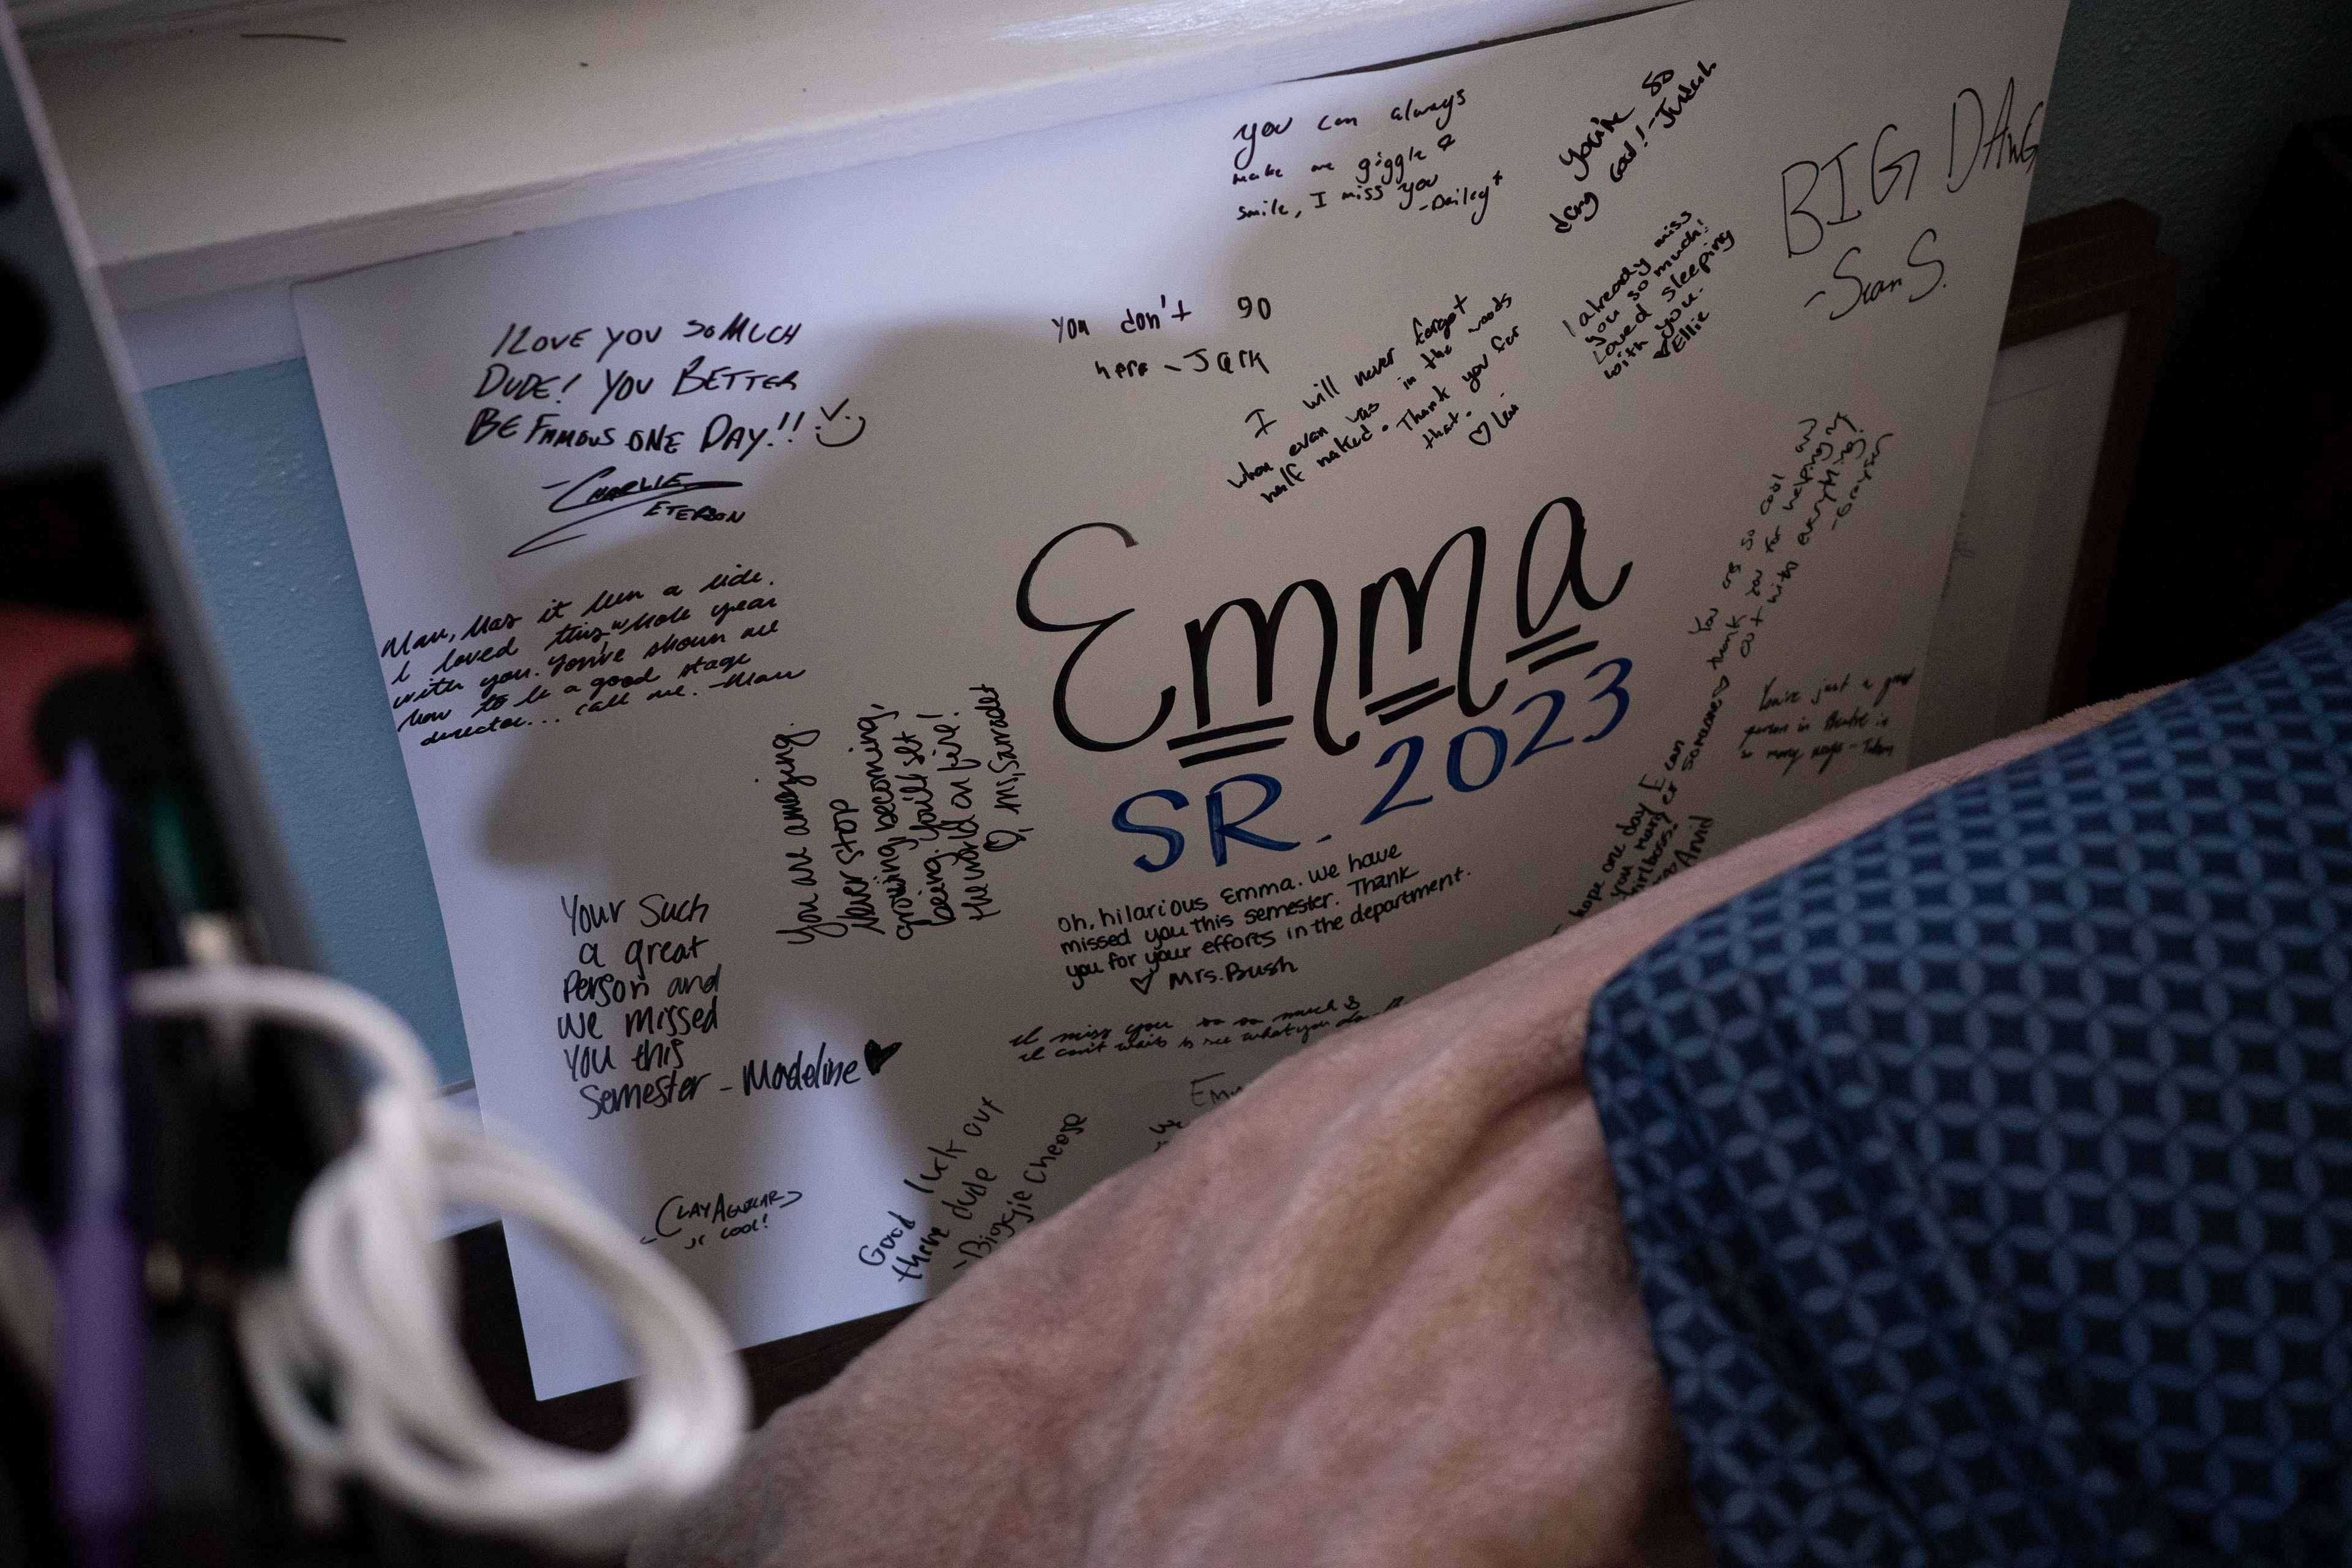 I LOVE YOU SO MUCH
DUDE! YOU BETTER
BE FAMOUS ONE DAY!!
-CHARLIE
ETERSON
Man, has it been a ride.
I loved this whole year
with you. You've shown me
how to be a good stage
director... call me. -Max
You are amazing.
Never stop
growing, becoming,
being. You'll set
the world on fire!
Ms.
Your Such
a great
Person and
we missed
You this
Semester - Madeline
-CLAY
ur cool!
you can always
make me giggle &
smile, I miss you
-Bailey
You don't go
here - Jack
you're so
dang cool! -
BIG DAWG
-Sean S.
I will never forget
when evan was in the woods
half naked. Thank you for
that.
I already miss
you so much!
Loved sleeping
with you.
Ellie
Emma
SR. 2023
You are so cool and
thank you for helping my
out with everything!
-Grayson
You're just a great
person in theatre in
so many ways -
hope one day I can
you marry er someone
girlboss.
oh, hilarious Emma. We have
missed you this semester. Thank
you for your efforts in the department.
Mrs. Bush
I'll miss you so so much &
I can't wait to see what you do
Good luck out
there dude
-Biggie Cheese
Em